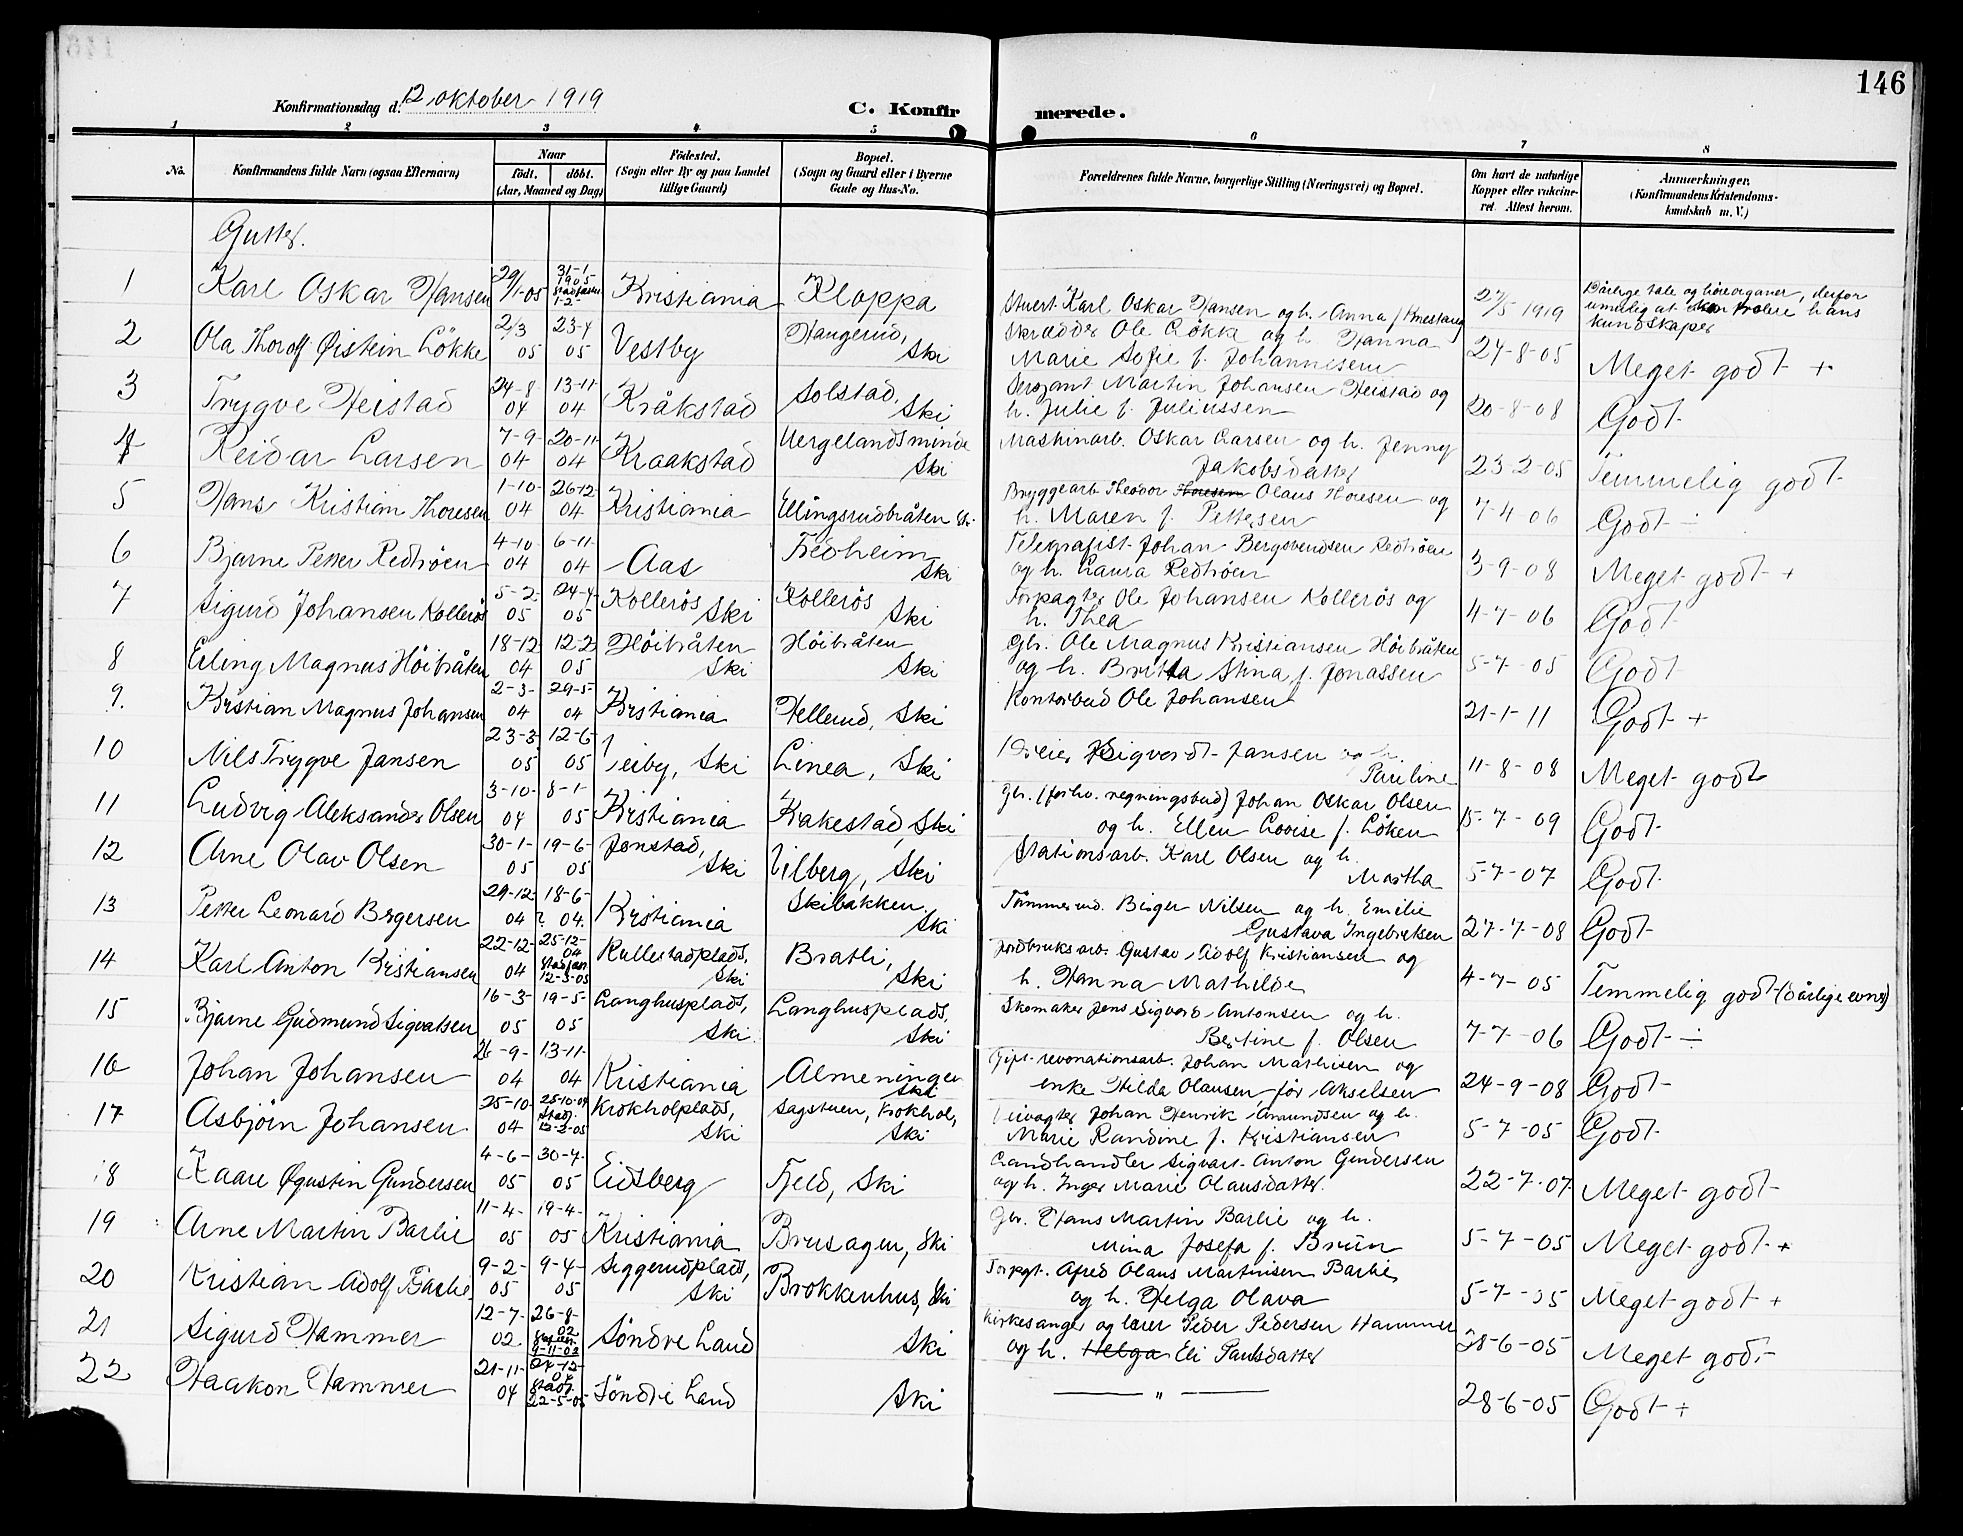 146
Konfirmationsdag d. 12 oktober 1919
C. Konfirmerede.
1 2 3 4 5 6 7 8
No. | Konfirmandens fulde Navn (ogsaa Efternavn) | Naar født. døbt. (Aar, Maaned og Dag) | Fødested. (Sogn eller By og paa Landet tillige Gaard) | Bopæl. (Sogn og Gaard eller i Byerne Gade og Hus-No. | Forældrenes fulde Navne, borgerlige Stilling (Næringsvei) og Bopæl. | Om havt de naturlige Kopper eller vakcineret. Attest herom. | Anmerkninger. (Konfirmandens Kristendomskundskab m. V.)
Gutter.
1 Karl Oskar Hansen 29/1-05 31-1 1905 1-2- Kristiania Kloppa Stuert Karl Oskar Hansen og h. Anna f. 27/5 1919 Dårlige tale og høreorganer, derfor umulig at prøve hans kundskaper
2 Ola Thorolf Øistein Løkke 2/3 05 23-4 05 Vestby Haugerud, Ski Skrædder Ole Løkke og h. Hanna Marie Sofie f. Johannesen 24-8-05 Meget godt +
3 Trygve Heistad 24-8 04 13-11 04 Kråkstad Solstad, Ski Sersjant Martin Johansen Heistad og h. Julie f. Juliussen 20-8-08 Godt
4 Reidar Larsen 7-9- 04 20-11 04 Kraakstad Vergelandsminde Ski Maskinarb. Oskar Larsen og h. Jenny Jakobsdatter 23-2-05 Temmelig godt
5 Hans Kristian Thoresen 1-10- 04 26-12 04 Kristiania Ellingsrudbråten Sk. Bryggearb. Theodor Thoresen Olaus Thoresen og h. Maren f. Pettersen 7-4-06 Godt ÷
6 Bjarne Petter Redtrøen 4-10- 04 6-11- 04 Aas Fredheim Ski Telegrafist Johan Bergsvendsen Redtrøen og h. Laura Redtrøen 3-9-08 Meget godt +
7 Sigurd Johansen Kollerøs 5-2- 05 24-4 05 Kollerøs Ski Kollerøs Ski Forpagter Ole Johansen Kollerøs og h. Thea 4-7-06 Godt
8 Erling Magnus Høibråten 18-12 04 12-2 05 Høibråten Ski Høibråten Ski Gbr. Ole Magnus Kristiansen Høibråten og h. Britta Stina f. Jonassen 5-7-05 Godt
9. Kristian Magnus Johansen 2-3- 04 29-5- 04 Kristiania Hellerud, Ski Kontorbud Ole Johansen 21-1-11 Godt +
10 Nils Trygve Jansen 23-3 05 12-6 05 Veiby, Ski Linea, Ski Dreier Sigvardt Jansen og h. Pauline 11-8-08 Meget godt
11 Ludvig Aleksander Olsen 3-10- 04 8-1- 05 Kristiania Kakestad, Ski Gbr. (forhv. regningsbud) Johan Oskar Olsen og h. Ellen Lovise f. Løken 15-7-09 Godt
12 Arne Olav Olsen 30-1- 05 19-6- 05 Jonstad, Ski Vilberg, Ski Stationsarb. Karl Olsen og h. Martha 5-7-07 Godt
13 Petter Leonard Bergersen 29-12 04? 18-6- 04. Kristiania Skibakken Ski Tømmermd. Birger Nilsen og h. Emilie Gustava Ingebretsen 27-7-08 Godt
14 Karl Anton Kristiansen 22-12- 04 25-12- 04 12-3-05 Kullestadplads, Ski Bratli, Ski Jordbruksarb. Gustav Adolf Kristiansen og h. Hanna Mathilde 4-7-05 Temmelig godt (dårlige evner)
15 Bjarne Gudmund Sigvatsen 16-3- 05 19-5- 05 Langhusplads, Ski Langhusplads, Ski Skomaker Jens Sigvard Antonsen og h. Bertine f. Olsen 7-7-06 Godt ÷
16 Johan Johansen 26-9- 04 13-11- 04 Kristiania Almeningen Ski renovationsarb. Johan Mathisen og enke Hilda Olausen før Akselsen 24-9-08 Godt
17 Asbjörn Johansen 25-10- 04 25-10-04 Stadf. 12-2-05 Krokholplads, Ski Sagstuen, Krokhol, Ski Veivogter Johan Henrik Amundsen og h. Marie Randine f. Kristiansen 5-7-05 Godt
18 Kaare Øgustin Gundersen 4-6- 05 30-7- 05 Eidsberg Fjeld, Ski Landhandler Sigvart Anton Gundersen og h. Inger Marie Olausdatter. 22-7-07 Meget godt
19 Arne Martin Barlie 11-4- 05 19-4- 05 Kristiania Brusagen, Ski Gbr. Hans Martin Barlie og h. Mina Josefa f. Brün 5-7-05 Meget godt +
20 Kristian Adolf Barlie 9-2- 05 9-4- 05 Siggerudplads, Ski Brokkenhus, Ski Forpgt. Afred Olaus Martinsen Barlie og h. Helga Olava 5-7-05 Meget godt +
21 Sigurd Hammer 12-7- 02 26-8- 02 9-11-02 Søndre Land Ski Kirkesanger og lærer Peder Pedersen Hammer og h. Helga Eli Paulsdatter 28-6-05 Meget godt
22 Haakon Hammer 21-11- 04 04 Stadf. 22-5-05 Søndre Land Ski — " — 28-6-05 Godt +